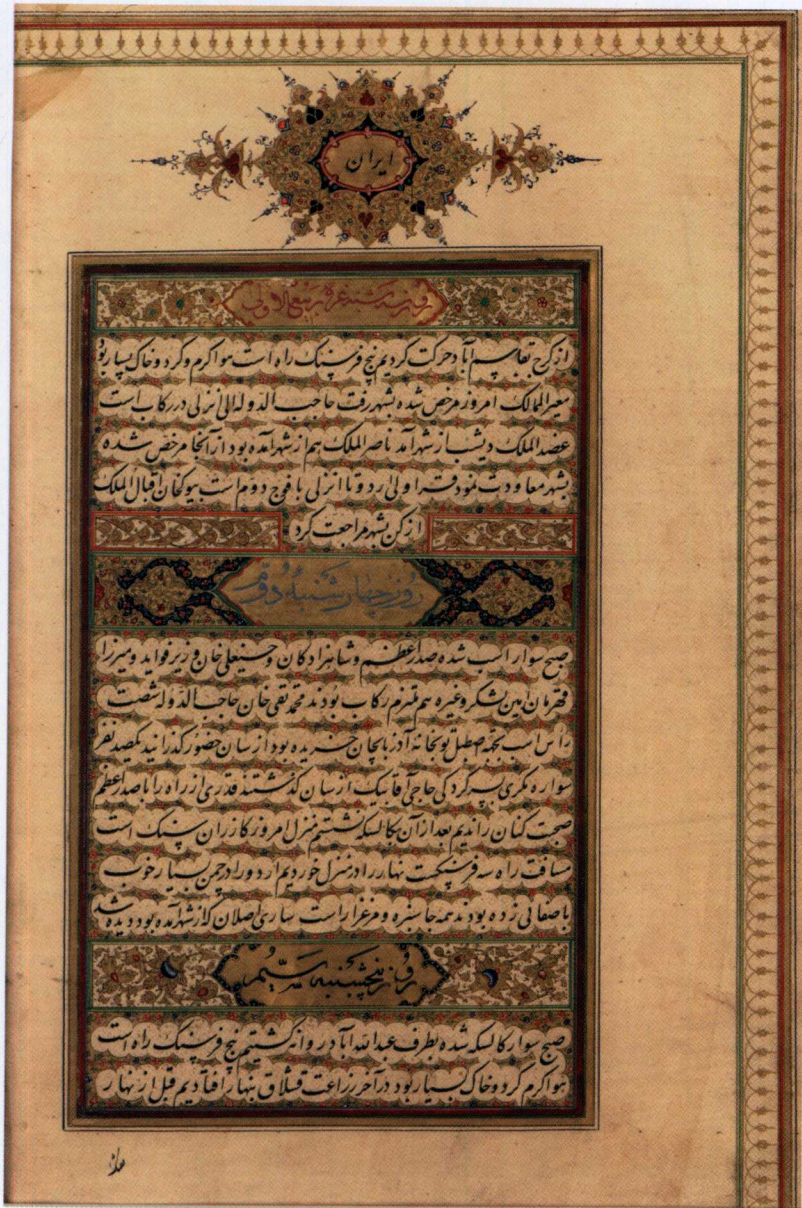 ایران
روز سه شنبه غره ربیع الاولی
از کرج بقاسم آباد حرکت کردیم پنج فرسنک راه است هوا کرم و کرد و خاک بسیار بود
معیر الممالک امروز مرخص شده بشهر رفت حاجب الدوله الی انزلی در رکاب است
عضد الملک دیشب از شهر آمد ناصر الملک هم از شهر آمده بود از آنجا مرخص شده
بشهر معاودت نمود قراولی اردو تا انزلی با فوج دوم است بیوکخان اقبال الملک
از کن بشهر مراجعت کرد
روز چهارشنبه دوم
صبح سوار اسب شده صدر اعظم و شاهزادکان و حسنعلی خان وزیر فواید و میرزا
قهرمان امین لشکر و غیره هم ملتزم رکاب بودند محمد تقی خان حاجب الدوله شصت
راس اسب بجهة اصطبل توبخانه آذربایجان خریده بود از سان حضور کذرانید یکصد نفر
سواره بسرکردکی حاجی آقا بیک از سان کذشتند قدری از راه را با صدر اعظم
صحبت کنان راندیم بعد از آن بکالسکه نشستیم منزل امروز کازران سنک است
مسافت راه سه فرسنکست نهار را در منزل خوردیم اردو را در چمن بسیار خوب
با صفائی زده بودند همه جا سبزه و مرغزار است ساری اصلان که از شهر آمده بود دیده شد
روز پنجشنبه سیم
صبح سوار کالسکه شده بطرف عبدالله آباد روانه کشتیم پنج فرسنک راه است
هوا کرم کرد و خاک بسیار بود در آخر زراعت قشلاق بنهار افتادیم قبل از نهار